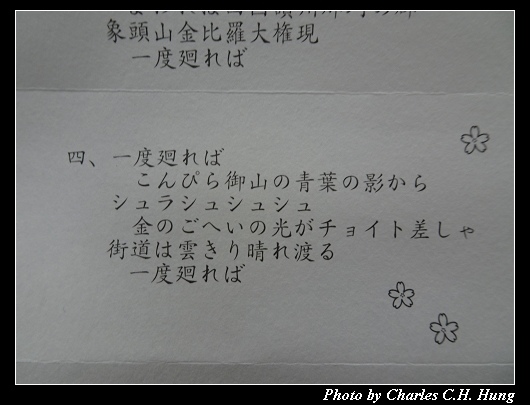 象頭山金比羅大権現
一度廻れば
四、一度廻れば
こんぴら御山の青葉の影から
シュラシュシュシュ
金のごへいの光がチョイト差しゃ
街道は雲きり晴れ渡る
一度廻れば
Photo by Charles C.H. Hung